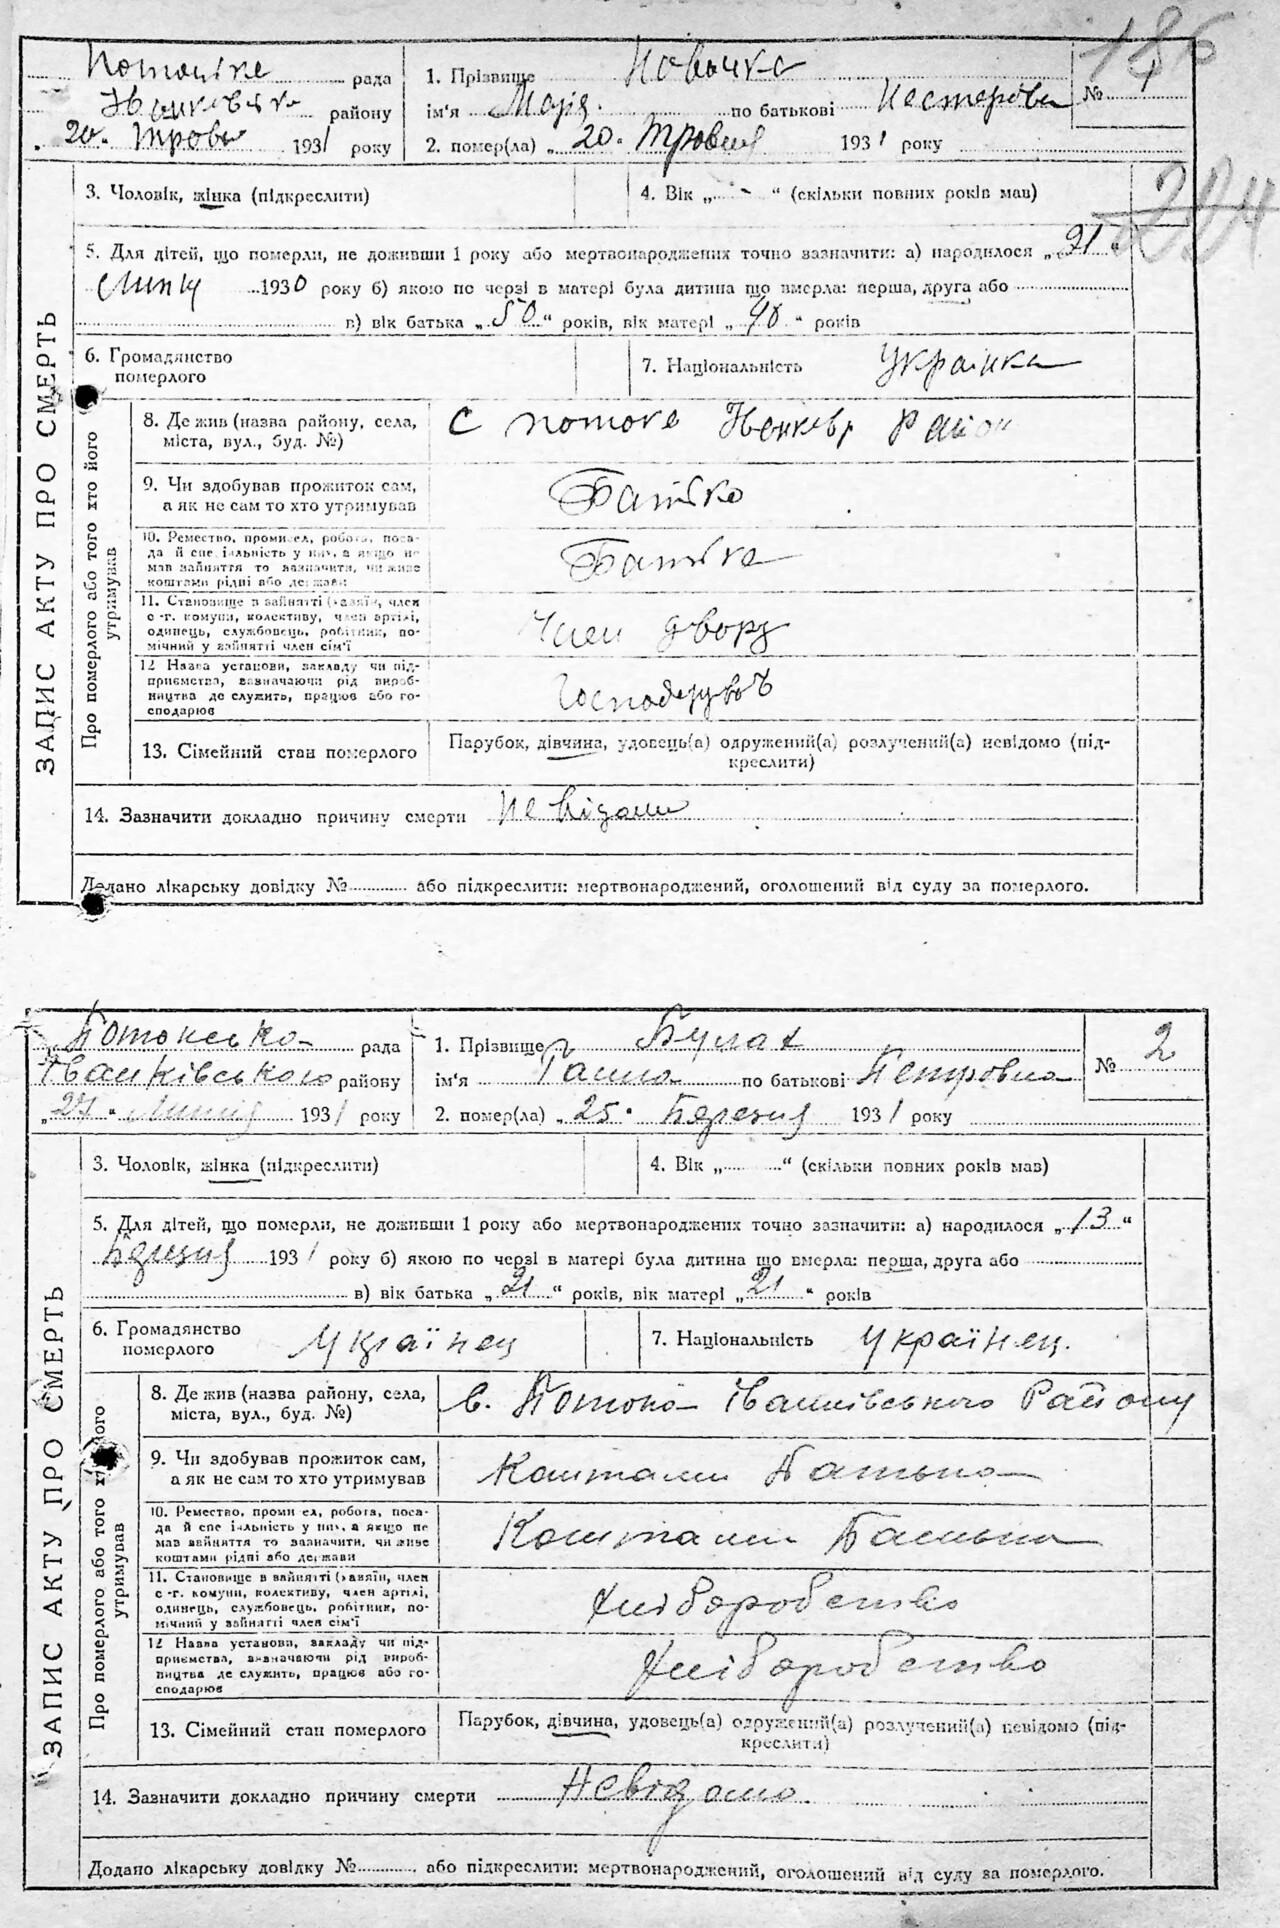 186
Потоцька рада
1. Прізвище Новачка
№ 1
району
ім'я Марія по батькові Нестерова
„ 20. Травня 1931 року
2. помер(ла) „ 20. Травня 1931 року
224
ЗАПИС АКТУ ПРО СМЕРТЬ
3. Чоловік, жінка (підкреслити)
4. Вік „ - “ (скільки повних років мав)
5. Для дітей, що померли, не доживши 1 року або мертвонароджених точно зазначити: а) народилося „ 21 “
Липня 1930 року б) якою по черзі в матері була дитина що вмерла: перша, друга або
в) вік батька „ 50 “ років, вік матері „ 40 “ років
6. Громадянство
померлого
7. Національність Українка
Про померлого або того хто його
утримував
8. Де жив (назва району, села,
міста, вул., буд. №)
с потоки Район
9. Чи здобував прожиток сам,
а як не сам то хто утримував
Батько
10. Ремество, промисел, робота, поса-
да й спеціальність у них, а якщо не
мав зайняття то зазначити, чи живе
коштами рідні або держави
Батька
11. Становище в зайнятті (хазяїн, член
с.-г. комуни, колективу, член артілі,
одинець, службовець, робітник, по-
мічний у зайнятті член сім'ї
Член двору
12 Назва установи, закладу чи під-
приємства, зазначаючи рід вироб-
ництва де служить, працює або го-
сподарює
13. Сімейний стан померлого
Парубок, дівчина, удовець(а) одружений(а) розлучений(а) невідомо (під-
креслити)
14. Зазначити докладно причину смерти Не відоми
Додано лікарську довідку № або підкреслити: мертвонароджений, оголошений від суду за померлого.
Потоксько рада
1. Прізвище Булах
№ 2
Іванківського району
ім'я Ганна по батькові Петровна
„ 27 “ Липня 1931 року
2. помер(ла) „ 25. Березня 1931 року
ЗАПИС АКТУ ПРО СМЕРТЬ
3. Чоловік, жінка (підкреслити)
4. Вік „ “ (скільки повних років мав)
5. Для дітей, що померли, не доживши 1 року або мертвонароджених точно зазначити: а) народилося „ 13 “
Березня 1931 року б) якою по черзі в матері була дитина що вмерла: перша, друга або
в) вік батька „ 21 “ років, вік матері „ 21 “ років
6. Громадянство
померлого
Українец
7. Національність Українец.
Про померлого або того хто його
утримував
8. Де жив (назва району, села,
міста, вул., буд. №)
с. Потока Іванківського Району
9. Чи здобував прожиток сам,
а як не сам то хто утримував
Коштами Батька
10. Ремество, промисел, робота, поса-
да й спеціальність у них, а якщо не
мав зайняття то зазначити, чи живе
коштами рідні або держави
Коштами Батька
11. Становище в зайнятті (хазяїн, член
с.-г. комуни, колективу, член артілі,
одинець, службовець, робітник, по-
мічний у зайнятті член сім'ї
Хліборобство
12 Назва установи, закладу чи під-
приємства, зазначаючи рід вироб-
ництва де служить, працює або го-
сподарює
Хліборобство
13. Сімейний стан померлого
Парубок, дівчина, удовець(а) одружений(а) розлучений(а) невідомо (під-
креслити)
14. Зазначити докладно причину смерти Невідомо
Додано лікарську довідку № або підкреслити: мертвонароджений, оголошений від суду за померлого.